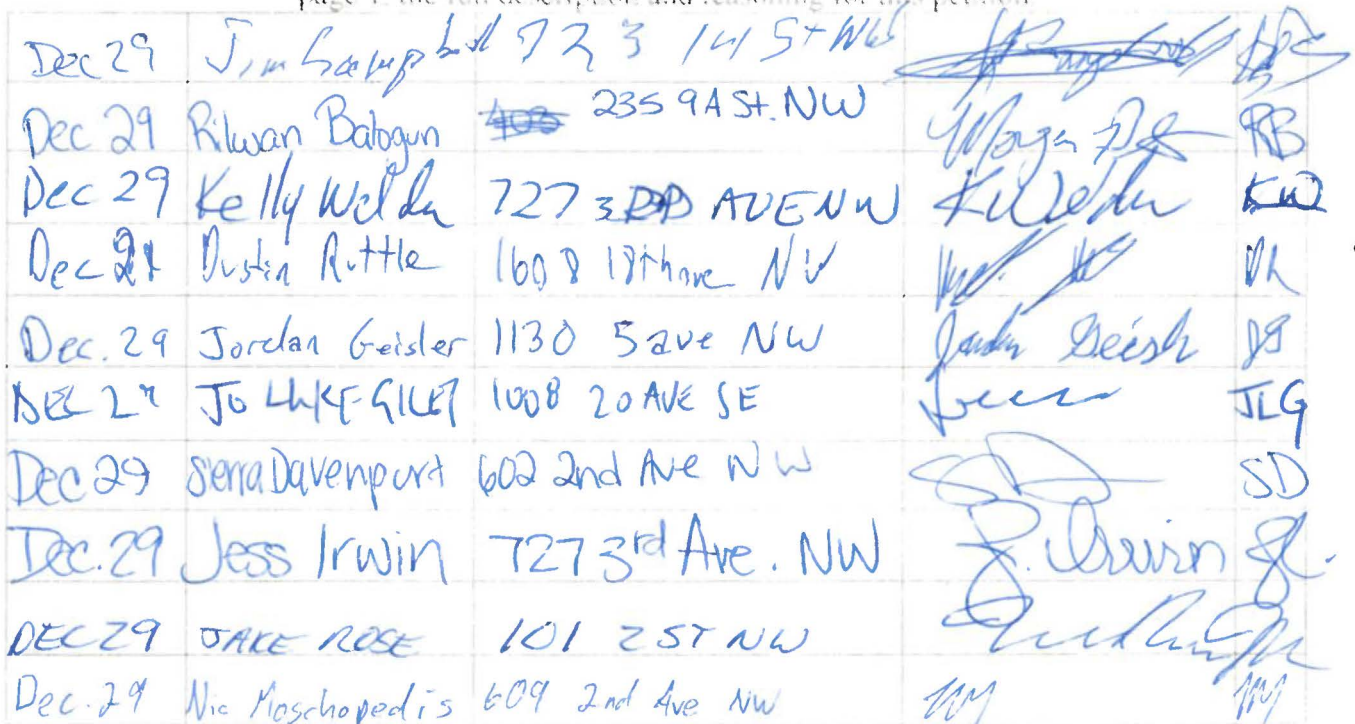 page 1. the full description and reasoning for this petition
Dec 29 Jim Campbell 723 14 St NW
Dec 29 Rilwan Balogun 235 9A St. NW RB
Dec 29 Kelly Welda 727 3RD AVE NW KW
Dec 29 Dustin Ruttle 1608 18th ave NW DR
Dec. 29 Jordan Geisler 1130 5 ave NW Jordan Geisler JG
DEC 29 JO LUKE GILET 1008 20 AVE SE JLG
Dec 29 Sierra Davenport 602 2nd Ave NW SD
Dec. 29 Jess Irwin 727 3rd Ave. NW J. Irwin JI.
DEC 29 JAKE ROSE 101 2 ST NW
Dec. 29 Nic Moschopedis 609 2nd Ave NW NM NM